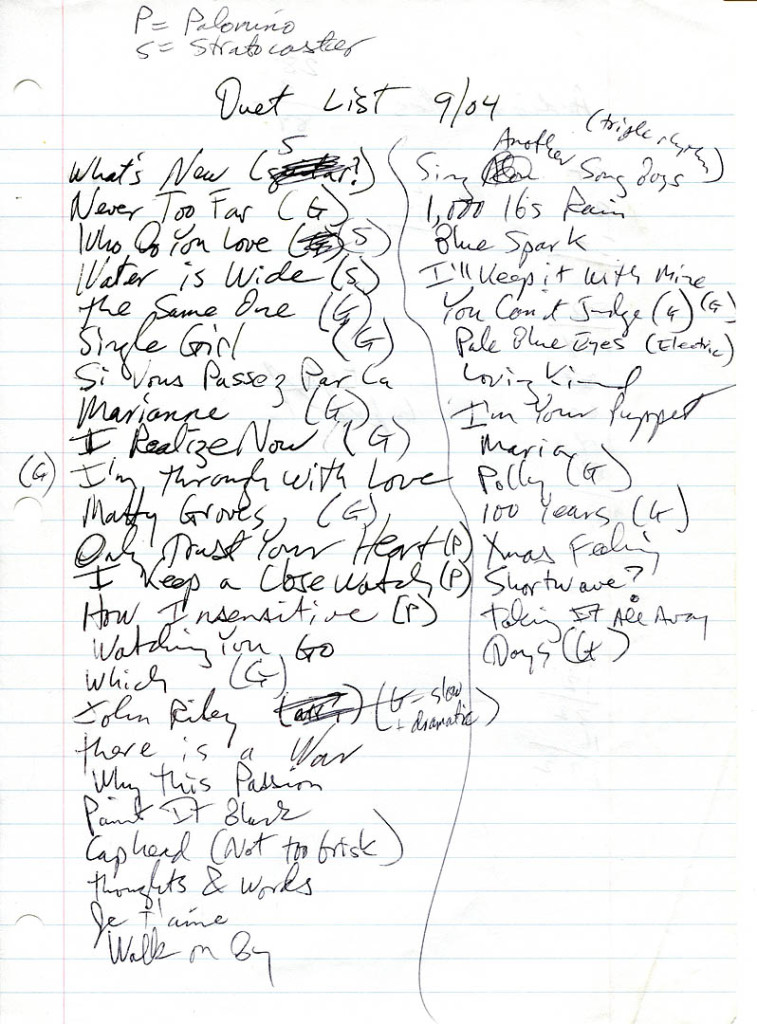 P = Palomino
S = Stratocaster
Duet List 9/04
What's New (S)
Never Too Far (G)
Who Do You Love (S)
Water is Wide (S)
the Same One (G)
Single Girl (G)
Si Vous Passez Par La
Marianne (G)
I Realize Now (G)
(G) I'm through with Love
Matty Groves, (G)
Only Trust Your Heart (P)
I Keep a Close Watch (P)
How Insensitive (P)
Watching You Go
Which (G)
John Riley (G = slow + dramatic)
there is a War
Why this Passion
Paint It Black
Caphead (Not too brisk)
thoughts & words
Je t'aime
Walk on By
Sing Another Song Boys (triple rhythm)
1,000 16s Rain
Blue Spark
I'll Keep it with Mine
You Can't Judge (G) (G)
Pale Blue Eyes (Electric)
Loving Kind
I'm Your Puppet
Maria
Polly (G)
100 Years (G)
Xmas Feeling
Shortwave?
Taking It All Away
Days (G)